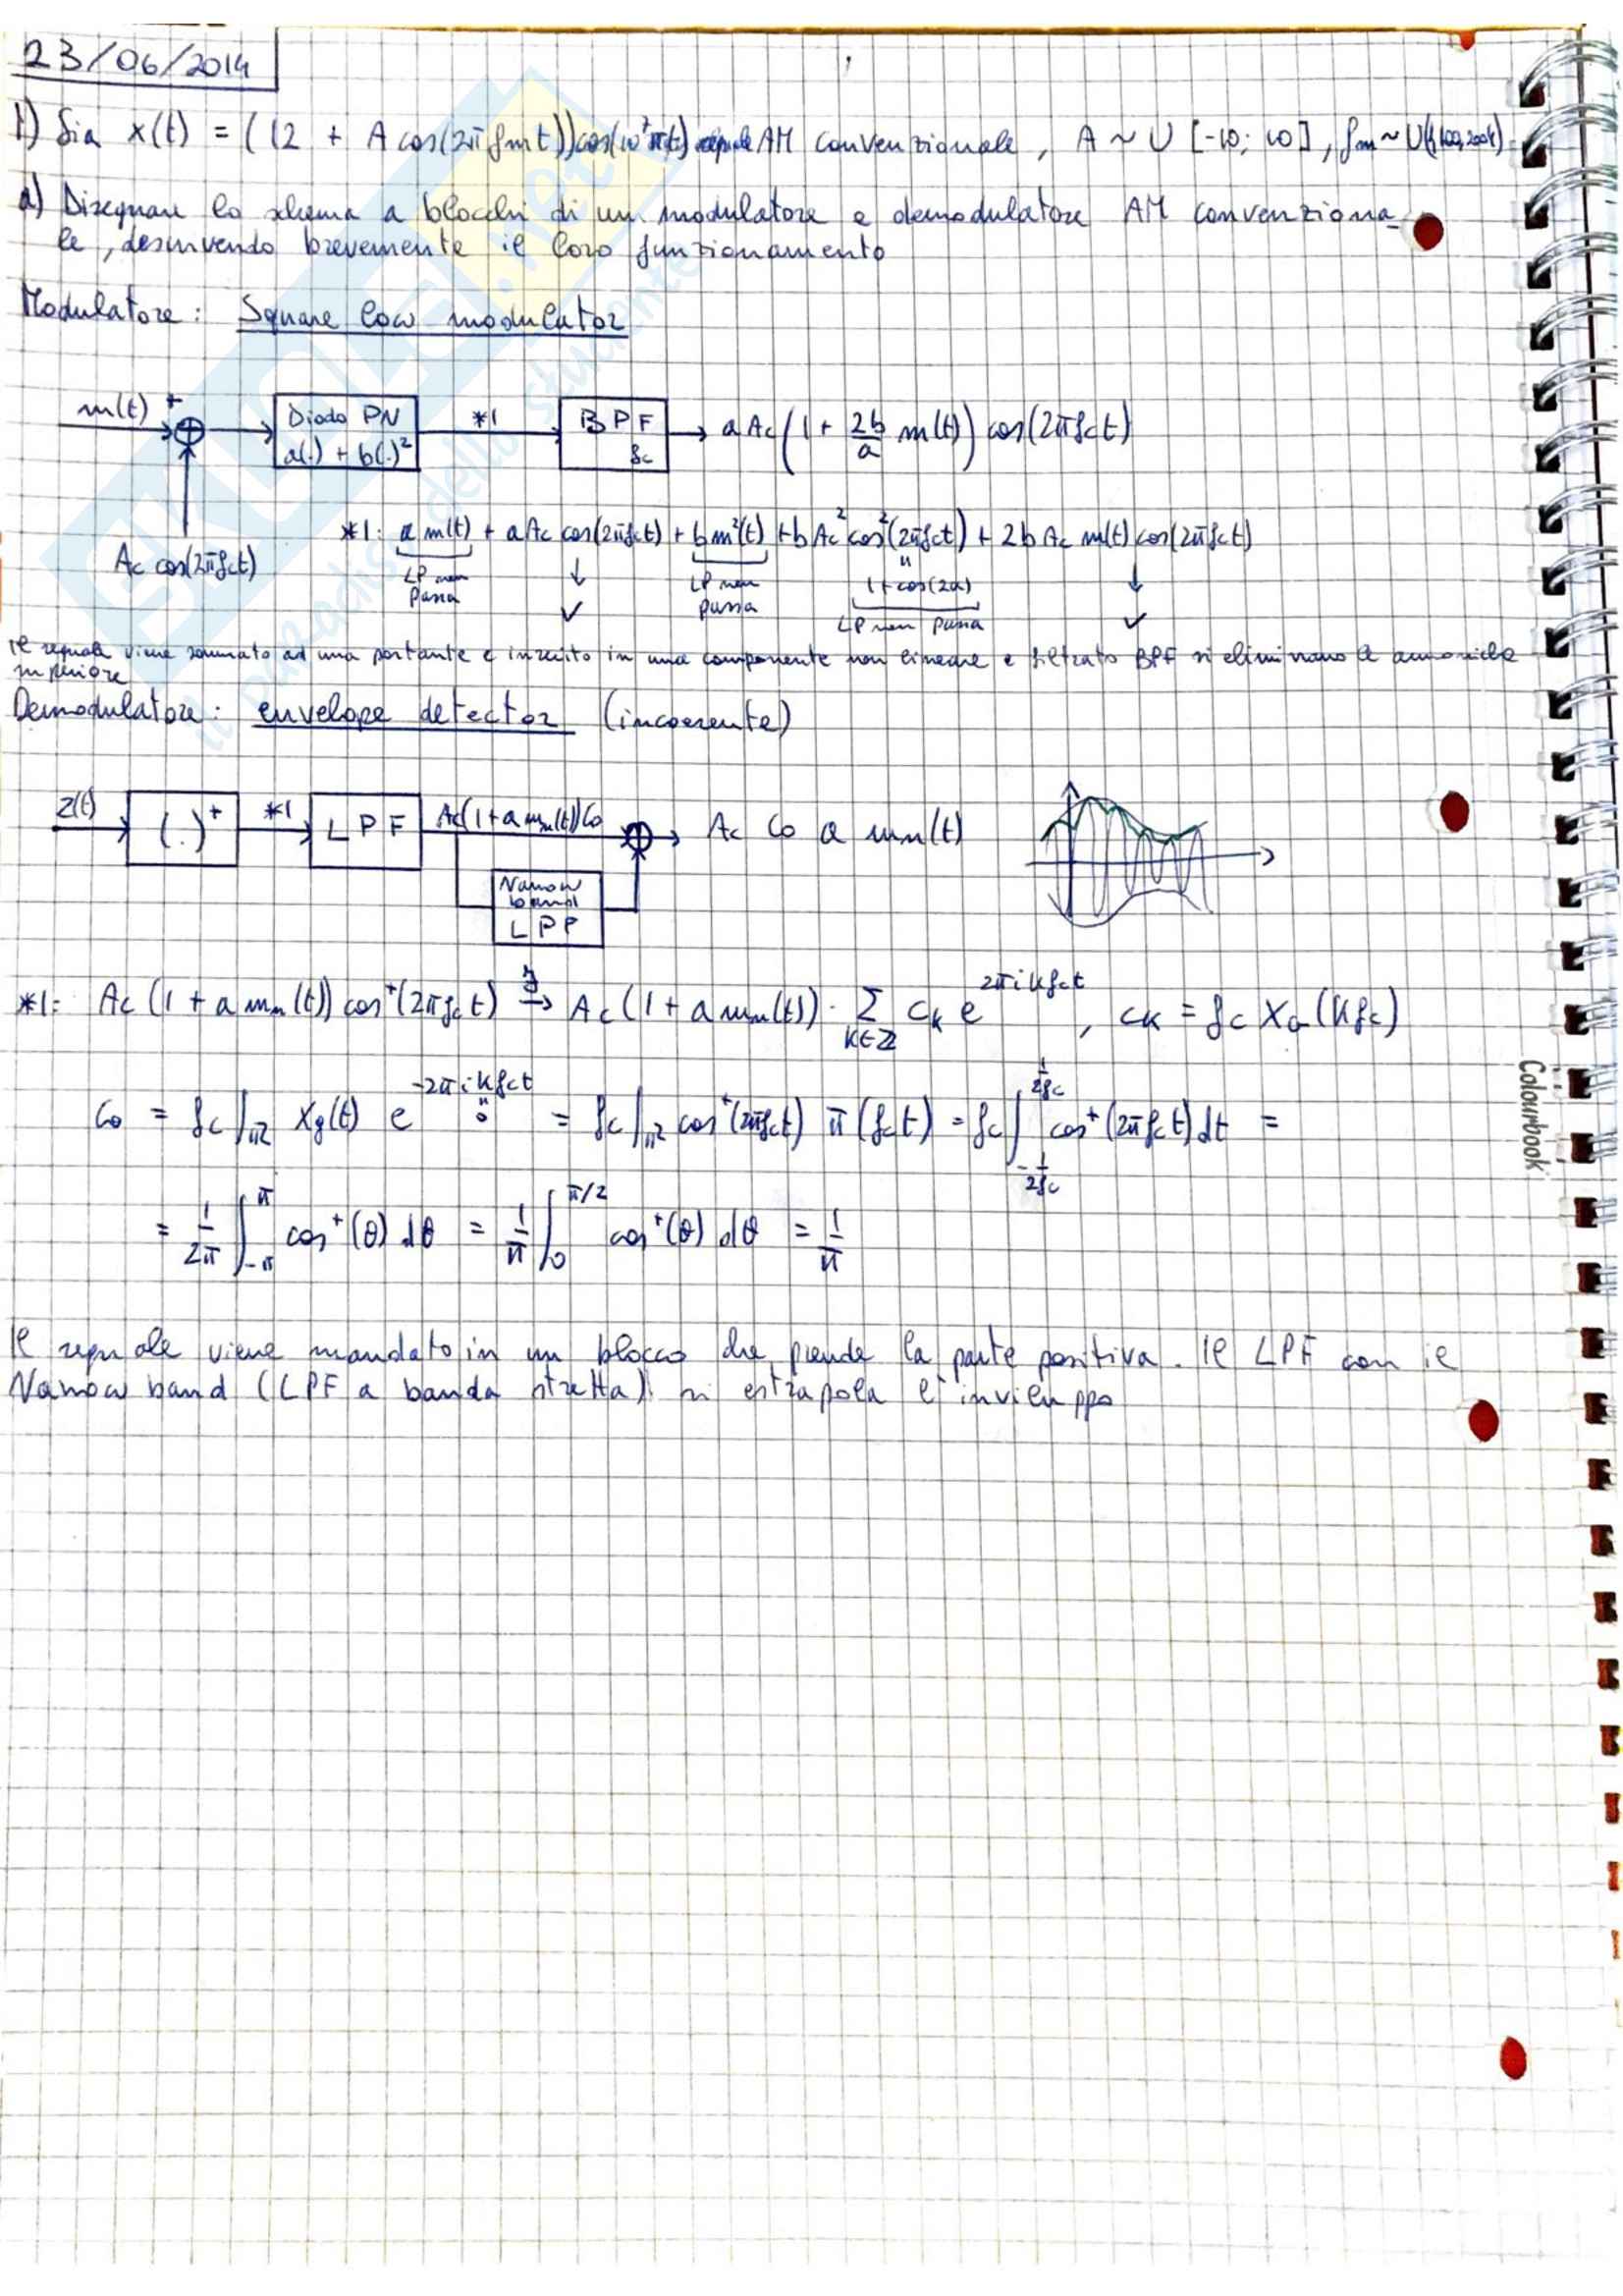 23/06/2014
1) Sia x(t) = ((2 + A cos(2π fm t)) cos(10⁴ π t) segnale AM convenzionale, A ~ U [-10; 10], fm ~ U
a) Disegnare lo schema a blocchi di un modulatore e demodulatore AM convenziona
le, descrivendo brevemente il loro funzionamento
Modulatore: Square low modulator
m(t) + Diodo PN *1 BPF → a Ac (1 + 2b/a m(t)) cos(2πfct)
a(.) + b(.)² fc
*1: a m(t) + a Ac cos(2πfct) + b m²(t) + b Ac² cos²(2πfct) + 2b Ac m(t) cos(2πfct)
Ac cos(2πfct) LP non ↓ LP non 1+cos(2a) ↓
passa ✓ passa LP non passa ✓
il segnale viene sommato ad una portante e inserito in una componente non lineare e filtrato BPF si eliminano le armoniche
superiore
Demodulatore: envelope detector (incoerente)
z(t) (.)⁺ *1 LPF Ac(1+a mn(t))c0 → Ac c0 a mn(t)
Narrow
band
LPF
*1: Ac (1 + a mn(t)) cos⁺(2πfct) → Ac (1 + a mn(t)) · Σ k∈ℤ ck e^{2πikfct}, ck = fc Xg(kfc)
c0 = fc ∫ℝ xg(t) e^{-2πikfct} = fc ∫ℝ cos⁺(2πfct) π(fct) = fc ∫_{-1/2fc}^{1/2fc} cos⁺(2πfct) dt =
= 1/2π ∫_{-π}^{π} cos⁺(θ) dθ = 1/π ∫_0^{π/2} cos⁺(θ) dθ = 1/π
Il segnale viene mandato in un blocco che prende la parte positiva. Il LPF con il
Narrow band (LPF a banda stretta) si estrapola l'inviluppo
Colourbook